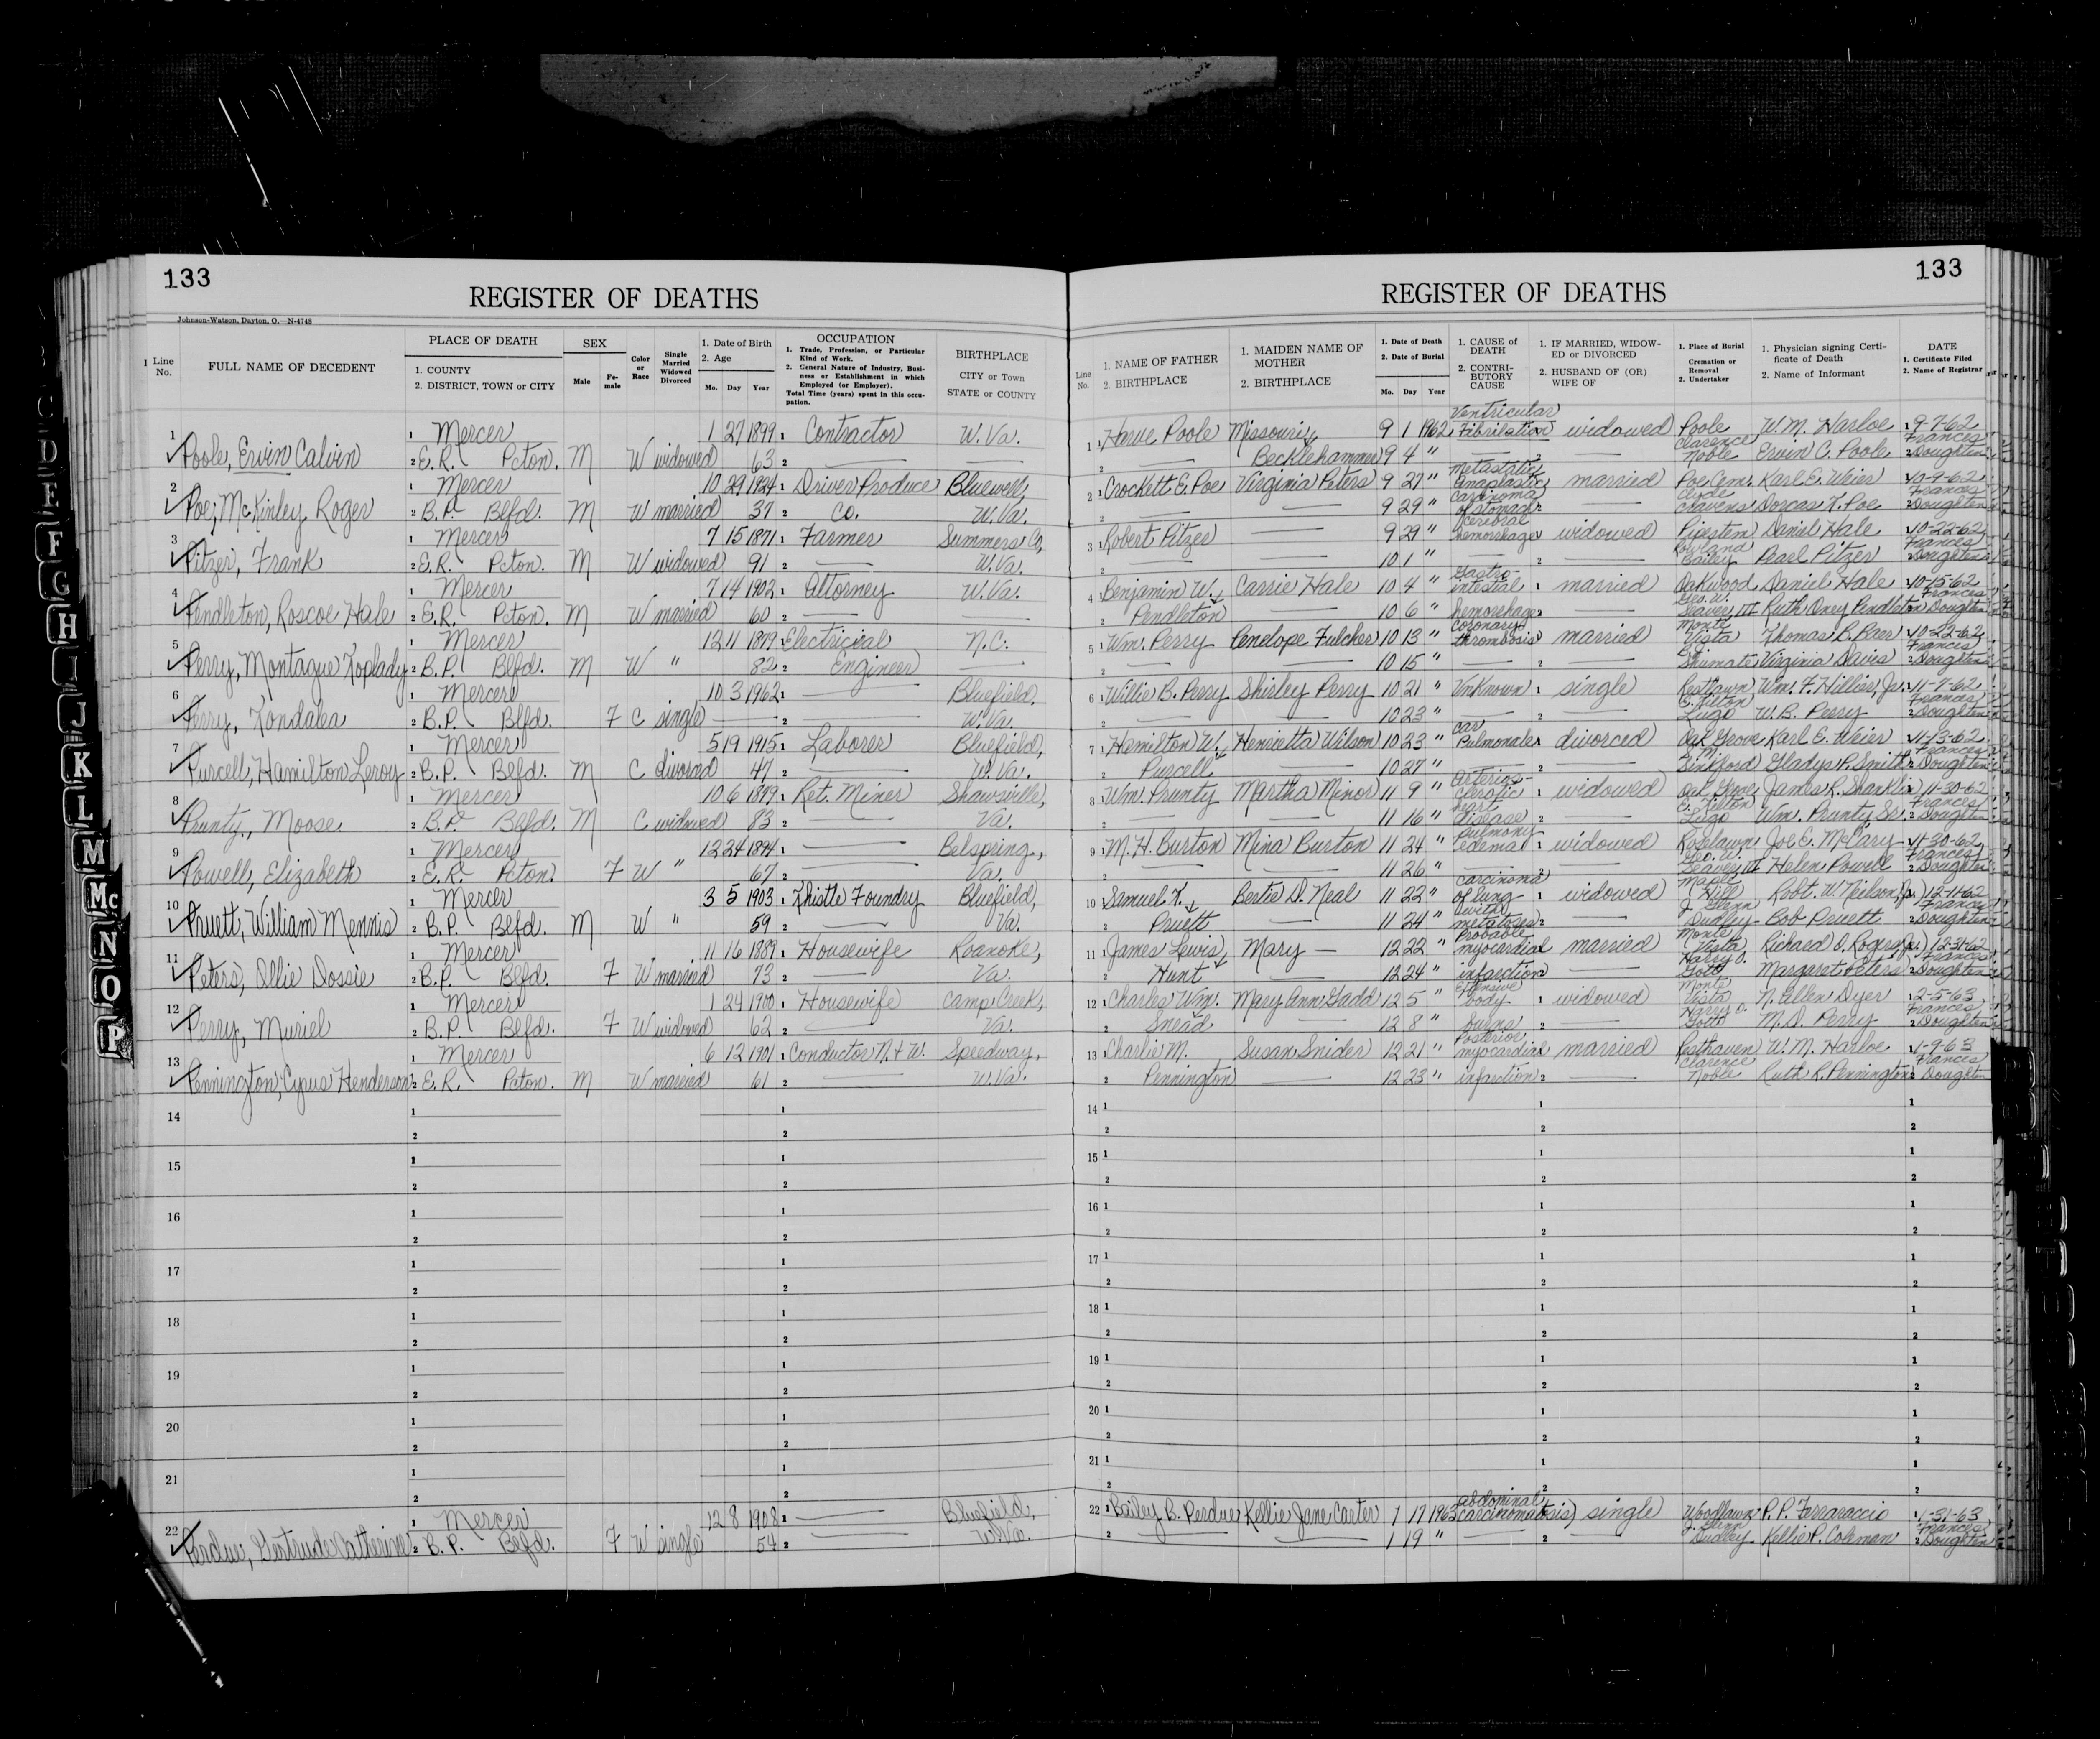 133
REGISTER OF DEATHS
Johnson-Watson, Dayton, O.—N-4748
Line No.
FULL NAME OF DECEDENT
PLACE OF DEATH
1. COUNTY
2. DISTRICT, TOWN or CITY
SEX
Male
Fe-male
Color or Race
Single Married Widowed Divorced
1. Date of Birth
2. Age
Mo. Day Year
OCCUPATION
1. Trade, Profession, or Particular Kind of Work.
2. General Nature of Industry, Business or Establishment in which Employed (or Employer).
Total Time (years) spent in this occupation.
BIRTHPLACE
CITY or Town
STATE or COUNTY
1 1 Mercer 1 27 1899 1 Contractor W. Va.
Poole, Ervin Calvin 2 E. R. Pcton. M W widowed 63 2
2 1 Mercer 10 29 1924 1 Driver Produce Bluewell,
Poe, McKinley Roger 2 B. P. Blfd. M W married 37 2 Co. W. Va.
3 1 Mercer 7 15 1871 1 Farmer Summers Co,
Pitzer, Frank 2 E. R. Pcton. M W widowed 91 2 W. Va.
4 1 Mercer 7 14 1902 1 Attorney W. Va.
Pendleton, Roscoe Hale 2 E. R. Pcton. M W married 60 2
5 1 Mercer 12 11 1879 Electricial N. C.
Perry, Montague Toplady 2 B. P. Blfd. M W " 82 2 Engineer
6 1 Mercer 10 3 1962 1 Bluefield
Perry, Tondalea 2 B. P. Blfd. F C single 2 W. Va.
7 1 Mercer 5 19 1915 1 Laborer Bluefield,
Purcell, Hamilton Leroy 2 B. P. Blfd. M C divorced 47 2 W. Va.
8 1 Mercer 10 6 1879 1 Ret. Miner Shawsville,
Prunty, Moose 2 B. P. Blfd. M C widowed 83 2 Va.
9 1 Mercer 12 24 1894 1 Belspring,
Powell, Elizabeth 2 E. R. Pcton. F W " 67 2 Va.
10 1 Mercer 3 5 1903 1 Thistle Foundry Bluefield,
Pruett, William Mennis 2 B. P. Blfd. M W " 59 2 Va.
11 1 Mercer 11 16 1889 1 Housewife Roanoke,
Peters, Ollie Dossie 2 B. P. Blfd. F W married 73 2 Va.
12 1 Mercer 1 24 1900 1 Housewife Camp Creek,
Perry, Muriel 2 B. P. Blfd. F W widowed 62 2 Va.
13 1 Mercer 6 12 1901 1 Conductor N. + W. Speedway,
Pennington, Cyrus Henderson 2 E. R. Pcton. M W married 61 2 W. Va.
14 1
2
15 1
2
16 1
2
17 1
2
18 1
2
19 1
2
20 1
2
21 1
2
22 1 Mercer 12 8 1908 1 Bluefield,
Perdue, Gertrude Catherine 2 B. P. Blfd. F W single 54 2 W. Va.
133
REGISTER OF DEATHS
Line No.
1. NAME OF FATHER
2. BIRTHPLACE
1. MAIDEN NAME OF MOTHER
2. BIRTHPLACE
1. Date of Death
2. Date of Burial
Mo. Day Year
1. CAUSE of DEATH
2. CONTRIBUTORY CAUSE
1. IF MARRIED, WIDOWED or DIVORCED
2. HUSBAND OF (OR) WIFE OF
1. Place of Burial Cremation or Removal
2. Undertaker
1. Physician signing Certificate of Death
2. Name of Informant
DATE
1. Certificate Filed
2. Name of Registrar
1 1 Harve Poole Missouri 9 1 1962 Ventricular Fibrilation widowed Poole W. M. Harloe 9-7-62
2 Becklehammer 9 4 " 2 Clarence Noble Ervin C. Poole 2 Frances Doughton
2 1 Crockett E. Poe Virginia Peters 9 27 " metastatic anaplastic married Poe Cem. Karl E. Weier 10-9-62
2 9 29 " carcinoma of stomach 2 Clyde Cravens Dorcas T. Poe 2 Frances Doughton
3 1 Robert Pitzer 9 29 " cerebral hemorrhage widowed Pipestem Daniel Hale 10-22-62
2 10 1 " 2 Rowland Bailey Pearl Pitzer 2 Frances Doughton
4 1 Benjamin W. Carrie Hale 10 4 " Gastro-intestial 1 married Oakwood Daniel Hale 10-15-62
2 Pendleton 10 6 " hemorrhage 2 Geo. W. Seaver III Ruth Oney Pendleton Frances Doughton
5 1 Wm. Perry Penelope Fulcher 10 13 " coronary thrombosis married Monte Vista Thomas B. Baer 10-22-62
2 10 15 " 2 Shumate Virginia Davis 2 Frances Doughton
6 1 Willie B. Perry Shirley Perry 10 21 " Unknown 1 single Restlawn Wm. F. Hillier, Jr. 11-7-62
2 10 23 " 2 E. Tilton Lugo W. B. Perry 2 Frances Doughton
7 1 Hamilton W. Henrietta Wilson 10 23 " Car Pulmonale 1 divorced Oak Grove Karl E. Weier 11-13-62
2 Purcell 10 27 " 2 Sinkford Gladys P. Smith 2 Frances Doughton
8 1 Wm. Prunty Martha Minor 11 9 " arterios-clerotic 1 widowed Oak Grove James R. Shanklin 11-30-62
2 11 16 " hart disease 2 E. Tilton Lugo Wm. Prunty Sr. 2 Frances Doughton
9 1 M. H. Burton Mina Burton 11 24 " pulmony edema 1 widowed Roselawn Joe E. McCary 11-30-62
2 11 26 " 2 Geo. W. Seaver III Helen Powell 2 Frances Doughton
10 1 Samuel T. Bertie D. Neal 11 22 " carcinoma of lung 1 widowed Maple Hill Robt. W. Neilson, Jr. 12-11-62
2 Pruett 11 24 " with 2 J. Glenn Dudley Bob Pruett 2 Frances Doughton
11 1 James Lewis Mary 12 22 " Probable myocardial married Monte Vista Richard O. Rogers Jr. 12-31-62
2 Hunt 12 24 " infarction 2 Harry O. Gott Margaret Peters 2 Frances Doughton
12 1 Charles Wm. Mary Ann Gadd 12 5 " body 1 widowed Monte Vista N. Allen Dyer 2-5-63
2 Snead 12 8 " burns 2 Harry O. Gott M. D. Perry 2 Frances Doughton
13 1 Charlie M. Susan Snider 12 21 " Posterior myocardial married Resthaven W. M. Harloe 1-9-63
2 Pennington 12 23 " infarction 2 Clarence Noble Ruth R. Pennington 2 Frances Doughton
14 1 1 1
2 2 2
15 1 1 1
2 2 2
16 1 1 1
2 2 2
17 1 1 1
2 2 2
18 1 1 1
2 2 2
19 1 1 1
2 2 2
20 1 1 1
2 2 2
21 1 1 1
2 2 2
22 1 Bailey B. Perdue Kellie Jane Carter 1 17 1963 abdominal carcinomatosis single Woodlawn P. P. Ferraraccio 1-31-63
2 1 19 " 2 J. Glenn Dudley Kellie P. Coleman 2 Frances Doughton
D
E
F
G
H
I
J
K
L
M
Mc
N
O
P